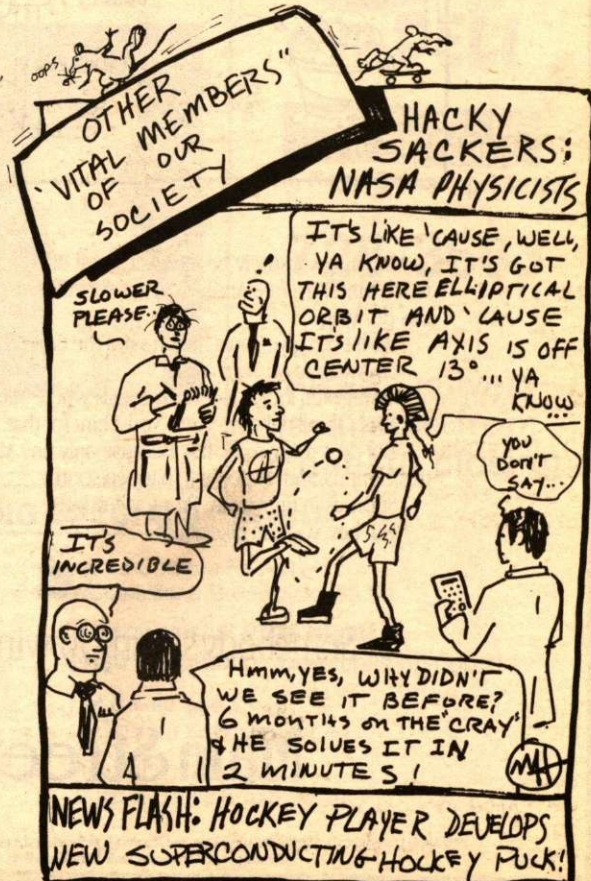 OOPS
OTHER
"VITAL MEMBERS"
OF OUR
SOCIETY
HACKY
SACKERS:
NASA PHYSICISTS
IT'S LIKE 'CAUSE, WELL,
YA KNOW, IT'S GOT
THIS HERE ELLIPTICAL
ORBIT AND 'CAUSE
IT'S LIKE AXIS IS OFF
CENTER 13°... YA
KNOW...
SLOWER
PLEASE...
!
YOU
DON'T
SAY...
IT'S
INCREDIBLE
Hmm, YES, WHY DIDN'T
WE SEE IT BEFORE?
6 MONTHS ON THE "CRAY"
& HE SOLVES IT IN
2 MINUTES!
NEWS FLASH: HOCKEY PLAYER DEVELOPS
NEW SUPERCONDUCTING HOCKEY PUCK!